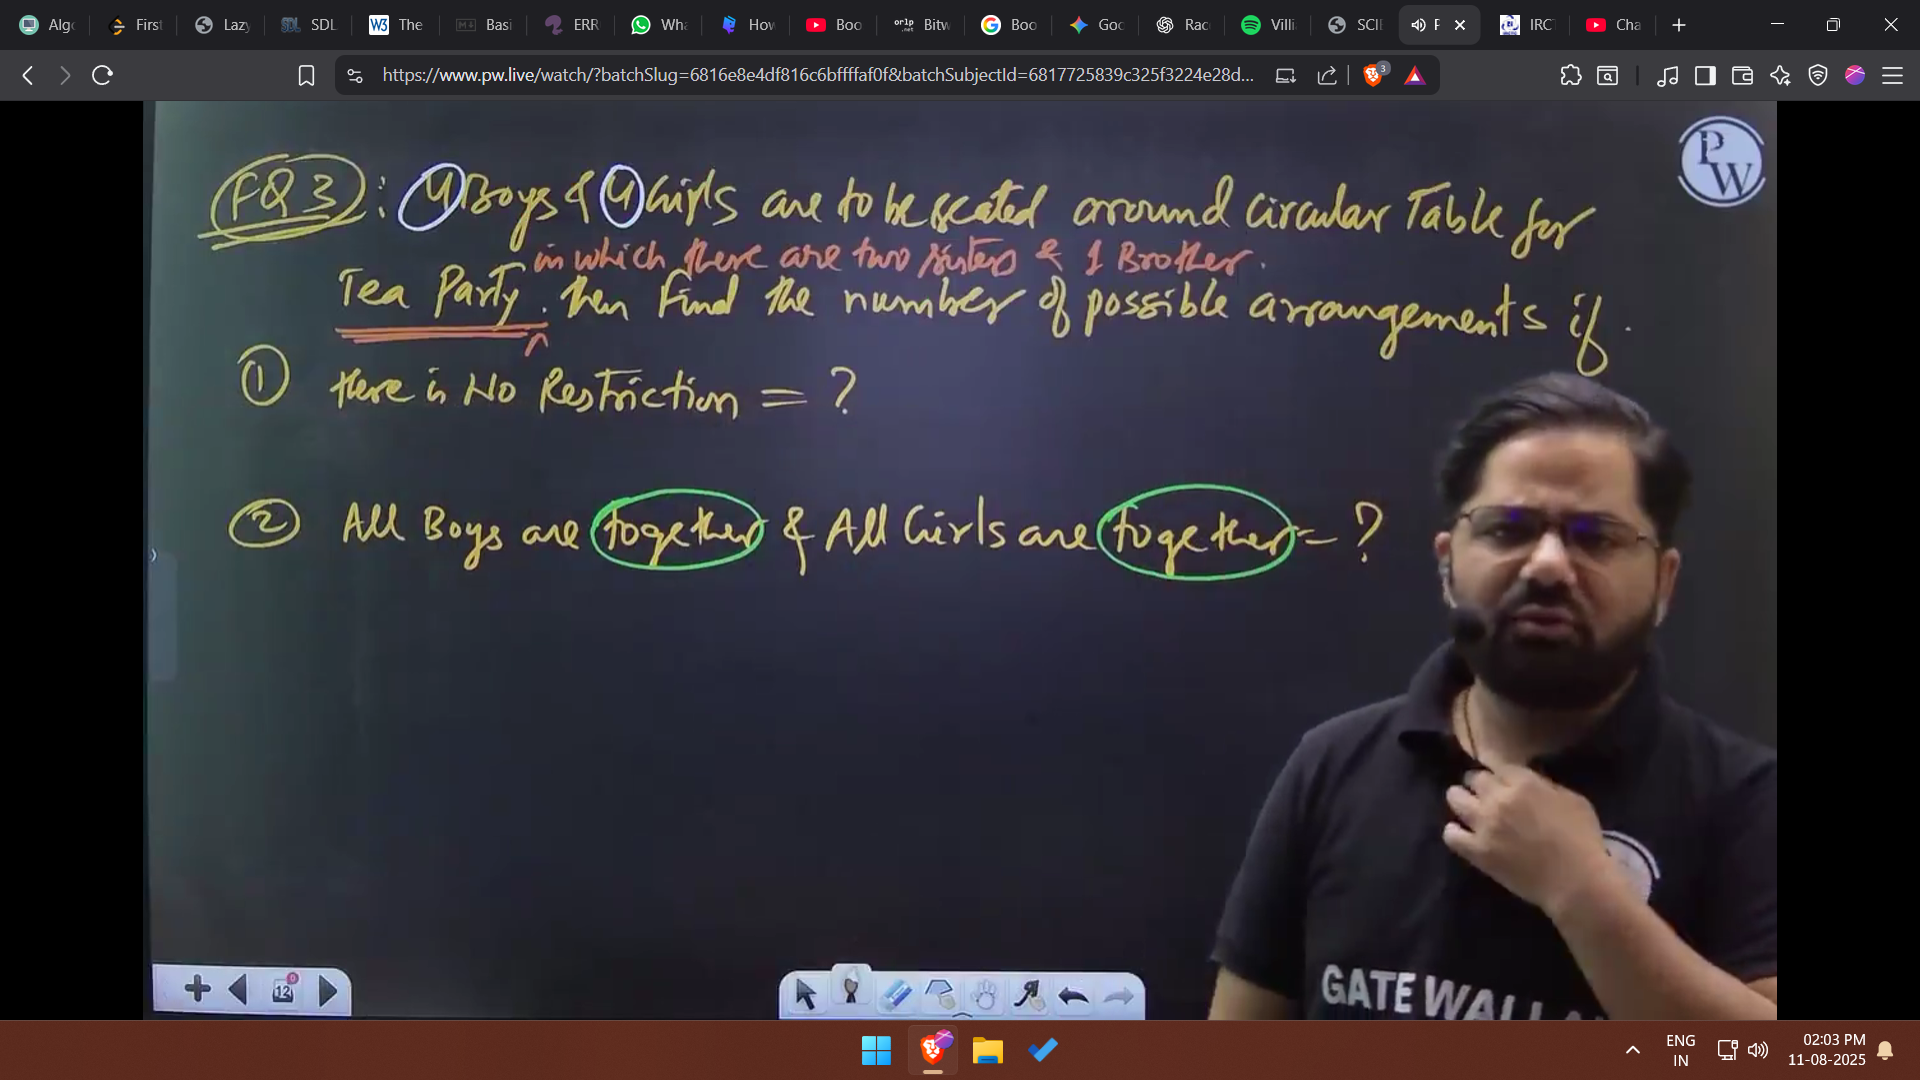 Algo
First
Lazy
SDL
W3 The
Basi
ERR
Wha
How
Boo
orlp .net Bitw
Boo
Goo
Rac
Villi
SCIE
F
IRCT
Cha
https://www.pw.live/watch/?batchSlug=6816e8e4df816c6bffffaf0f&batchSubjectId=6817725839c325f3224e28d...
3
P W
FQ 3 : 4 Boys & 4 Girls are to be seated around circular Table for
in which there are two sisters & 1 Brother.
Tea Party. then Find the number of possible arrangements if.
① there is No Restriction = ?
② All Boys are together & All Girls are together = ?
GATE WALLA
12
0
ENG
IN
02:03 PM
11-08-2025